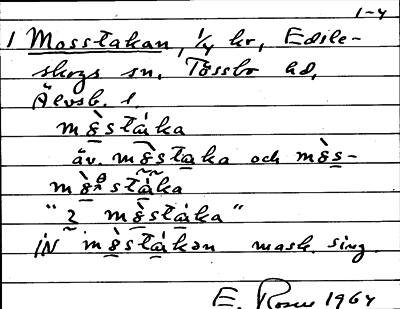 1-4
1 Mosstakan, 1/4 kr, Edsle-
skogs sn, Tössbo hd,
Älvsb. l.
mȣ̀stáka
äv. mȣ̀staka och mȣ̀s-
mȣ̀stáka
"2 mȣ̀staka"
iN mȣ̀stákən mask. sing.
E. Rosen 1964